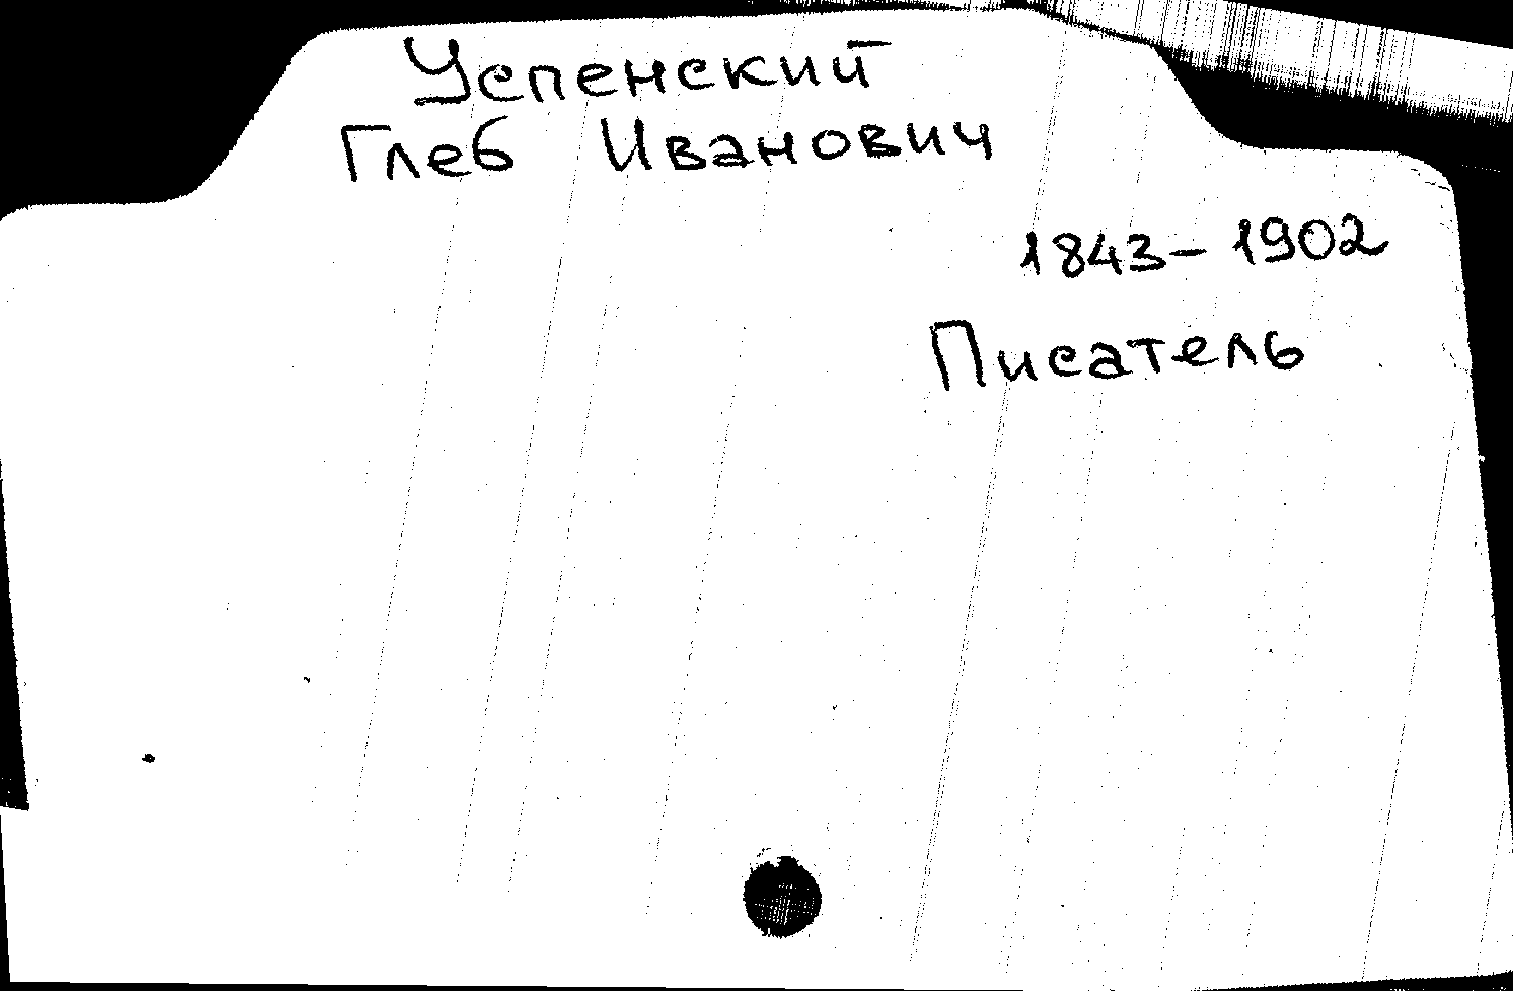 Успенский
Глеб Иванович
1843-1902
Писатель